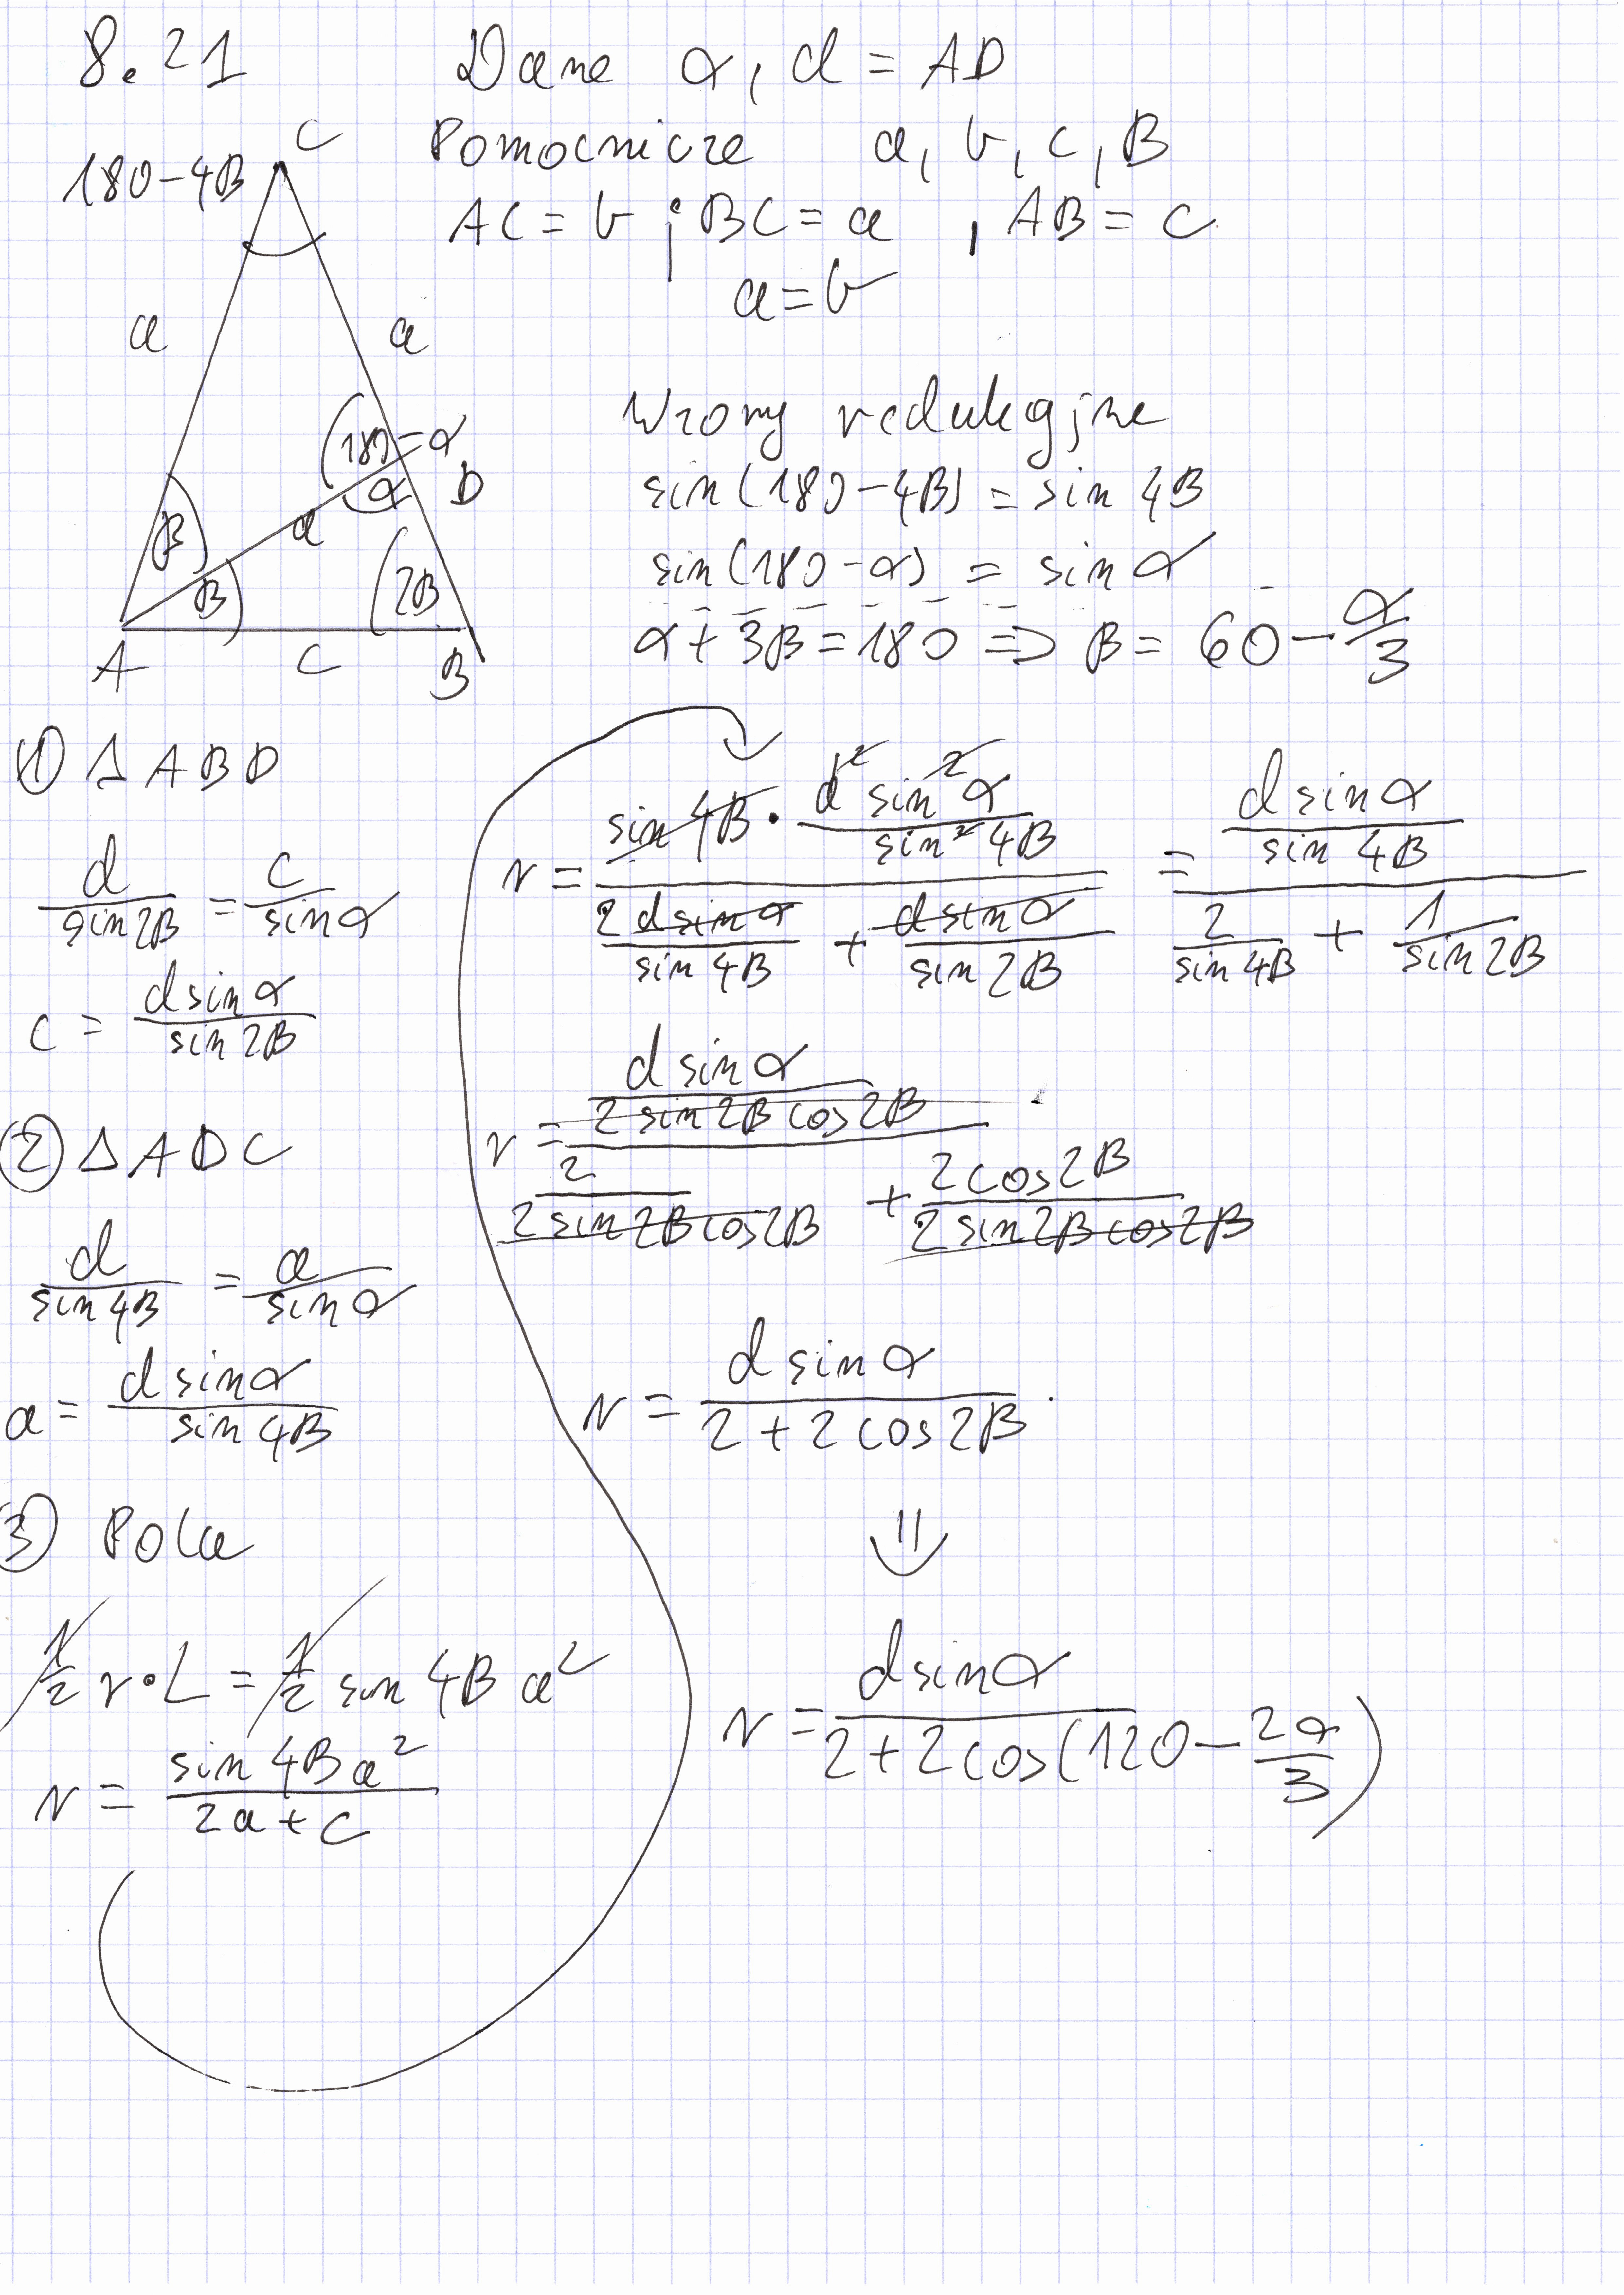 8.21 Dane α, d = AD
Pomocnicze a, b, c, β
AC = b ; BC = a , AB = c
a = b
C
180-4β
a a
180-α
α D
β d
β 2β
A c B
Wzory redukcyjne
sin(180-4β) = sin 4β
sin(180-α) = sin α
α + 3β = 180 => β = 60 - α/3
① Δ ABD
d/sin2β = c/sinα
c = dsinα/sin2β
② Δ ADC
d/sin4β = a/sinα
a = dsinα/sin4β
③ Pola
1/2 r·L = 1/2 sin 4β a²
r = sin4β a²/(2a+c)
r = (sin4β · d² sin²α/sin²4β)/(2dsinα/sin4β + dsinα/sin2β) = (dsinα/sin4β)/(2/sin4β + 1/sin2β)
r = (dsinα/2sin2βcos2β)/(2/2sin2βcos2β + 2cos2β/2sin2βcos2β)
r = dsinα/(2+2cos2β)
⇓
r = dsinα/(2+2cos(120-2α/3))